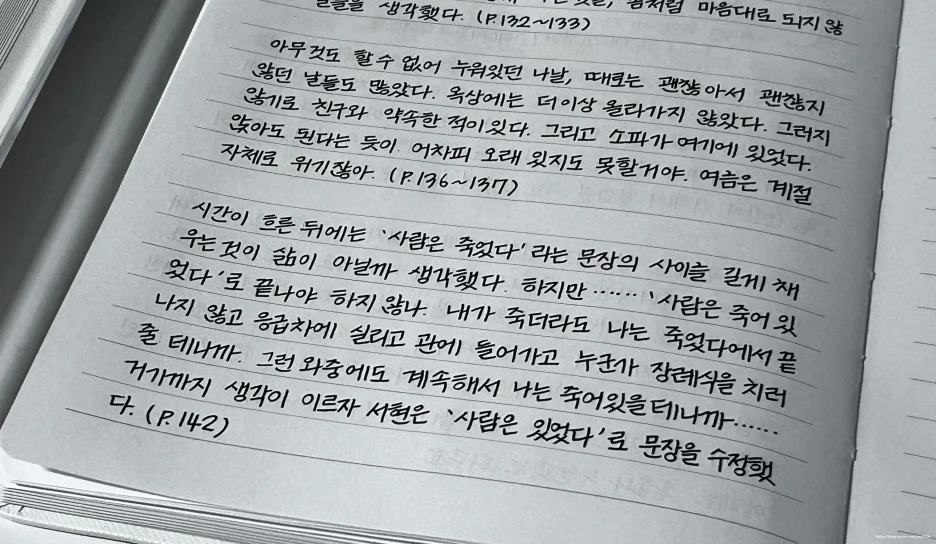 것들, 몸처럼 마음대로 되지 않
말들을 생각했다. (P.132~133)
아무것도 할 수 없어 누워있던 나날, 때로는 괜찮아서 괜찮지
않던 날들도 많았다. 옥상에는 더이상 올라가지 않았다. 그러지
않기로 친구와 약속한 적이 있다. 그리고 소파가 여기에 있었다.
앉아도 된다는 듯이. 어차피 오래 있지도 못할거야. 여름은 계절
자체로 위기잖아. (P.136~137)
시간이 흐른 뒤에는 '사람은 죽었다'라는 문장의 사이를 길게 채
우는 것이 삶이 아닐까 생각했다. 하지만…… '사람은 죽어 있
었다'로 끝나야 하지 않나. 내가 죽더라도 나는 죽었다에서 끝
나지 않고 응급차에 실리고 관에 들어가고 누군가 장례식을 치러
줄 테니까. 그런 와중에도 계속해서 나는 죽어있을 테니까……
거기까지 생각이 이르자 서현은 '사람은 있었다'로 문장을 수정했
다. (P.142)